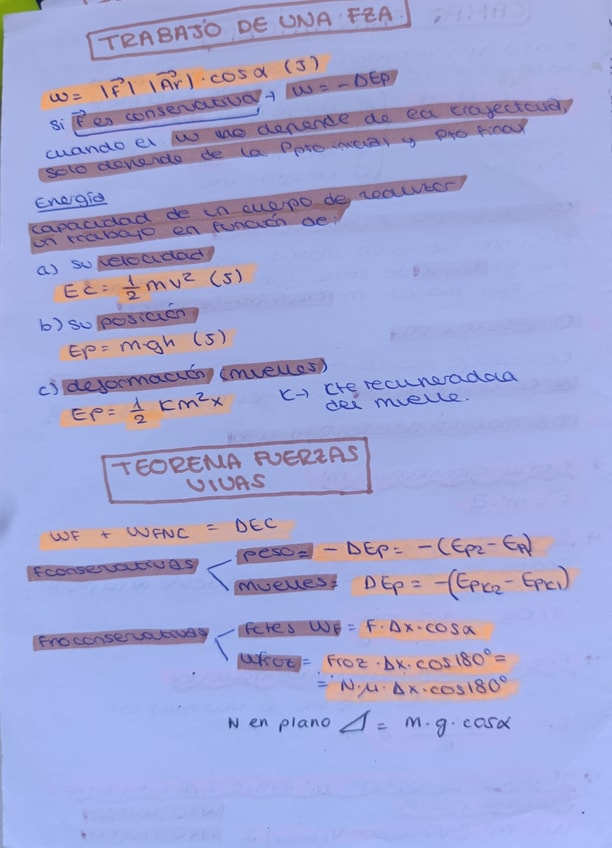 TRABAJO DE UNA FZA
W = |F⃗| |Δr⃗| · cosα (J)
Si F⃗ es conservativa → W = -DEp
cuando el W no depende de la trayectoria,
solo depende de la Ppto inicial y pto final
Energía
capacidad de un cuerpo de realizar
un trabajo en función de:
a) su velocidad
Ec = 1/2 mv² (J)
b) su posición
Ep = m·gh (J)
c) deformación (muelles)
Ep = 1/2 Km²x K→ Kte recuperadora
del muelle.
TEOREMA FUERZAS
VIVAS
WF + WFNC = DEC
Fconservativas peso = -DEp = -(Ep2 - Ep1)
muelles = DEp = -(EpK2 - EpK1)
Fnoconservativas fctes WF = F·Δx·cosα
Wfroz = Froz·Δx·cos180° =
= N·μ·Δx·cos180°
N en plano ⊿ = m·g·cosα